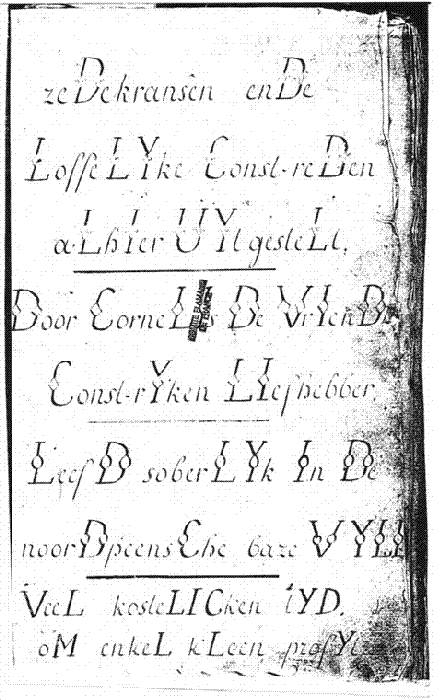 zeDekransen enDe
LoffeLYke Const-reDen
aLhIer UYtgesteLt,
Door CorneLIs De VrIenDt
Const-rYken LIefhebber,
LeefD soberLYk In De
noorDpeensChe baze VYLL
VeeL kosteLICken tYD.
oM enkeL kLeen profYt